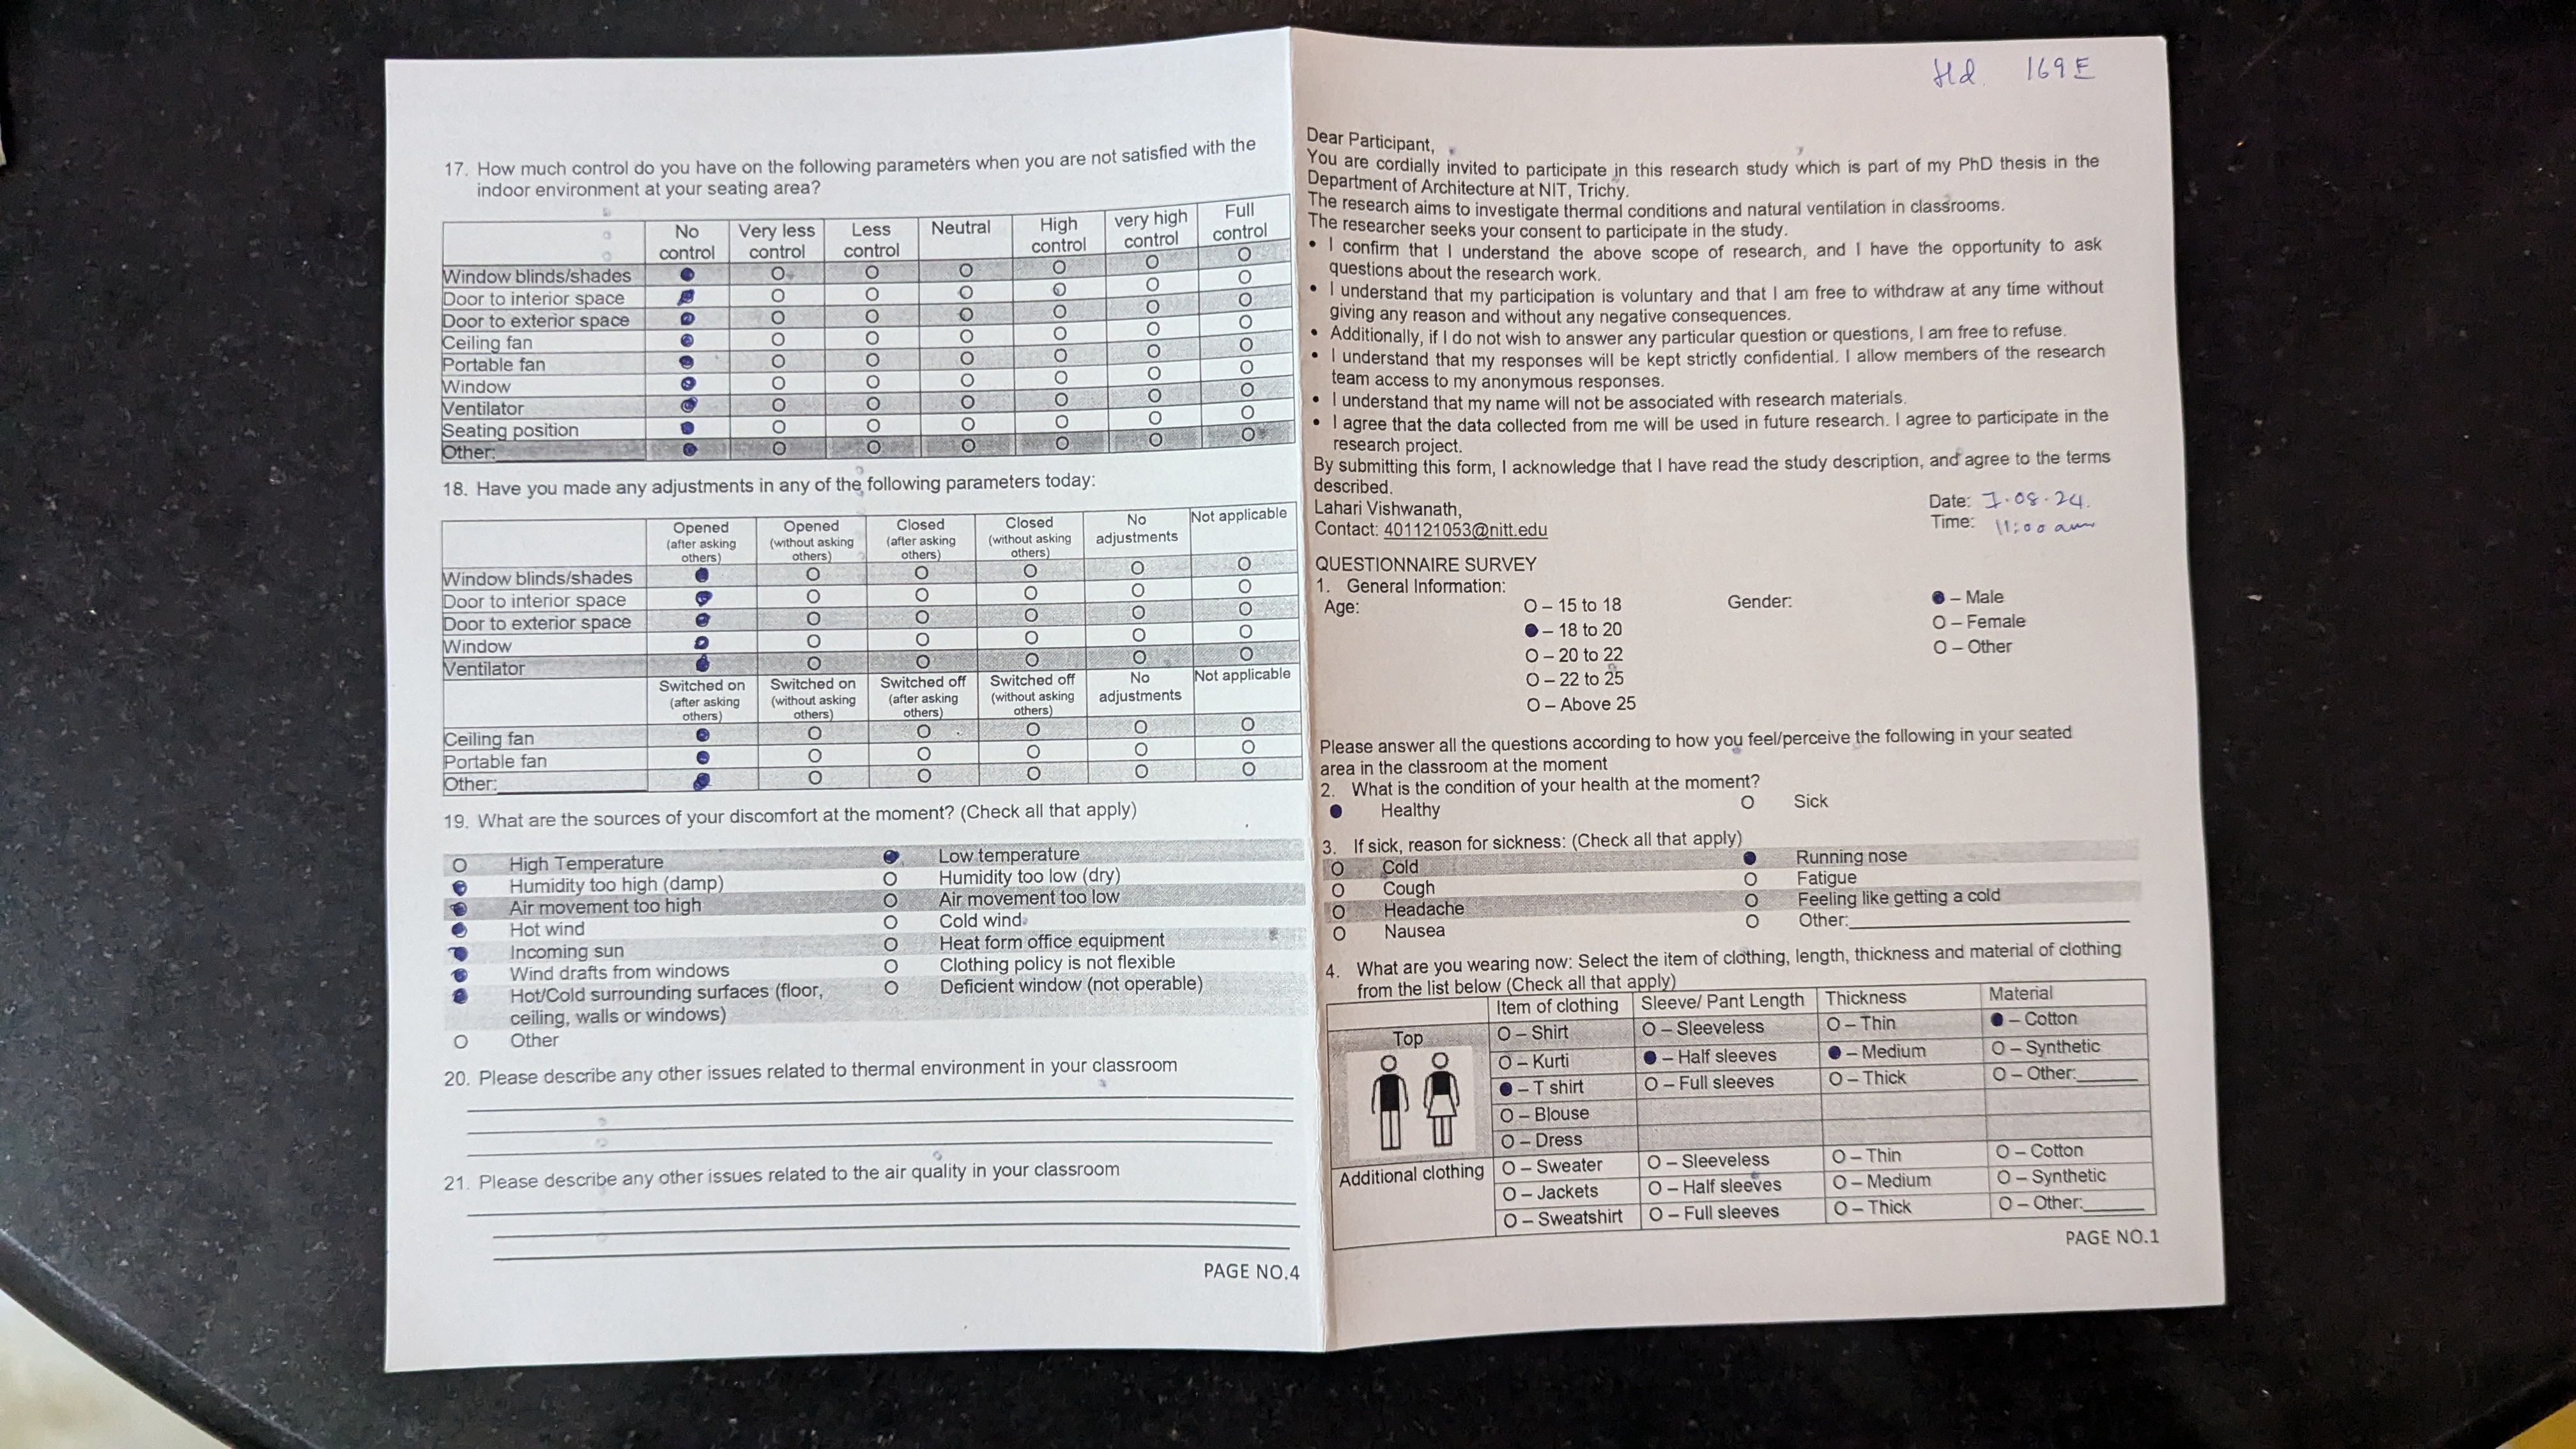 17. How much control do you have on the following parameters when you are not satisfied with the
indoor environment at your seating area?
No control Very less control Less control Neutral High control very high control Full control
Window blinds/shades ● O O O O O O
Door to interior space ● O O O O O O
Door to exterior space ● O O O O O O
Ceiling fan ● O O O O O O
Portable fan ● O O O O O O
Window ● O O O O O O
Ventilator ● O O O O O O
Seating position ● O O O O O O
Other: ● O O O O O O
18. Have you made any adjustments in any of the following parameters today:
Opened (after asking others) Opened (without asking others) Closed (after asking others) Closed (without asking others) No adjustments Not applicable
Window blinds/shades ● O O O O O
Door to interior space ● O O O O O
Door to exterior space ● O O O O O
Window ● O O O O O
Ventilator ● O O O O O
Switched on (after asking others) Switched on (without asking others) Switched off (after asking others) Switched off (without asking others) No adjustments Not applicable
Ceiling fan ● O O O O O
Portable fan ● O O O O O
Other: ● O O O O O
19. What are the sources of your discomfort at the moment? (Check all that apply)
O High Temperature ● Low temperature
● Humidity too high (damp) O Humidity too low (dry)
● Air movement too high O Air movement too low
● Hot wind O Cold wind
● Incoming sun O Heat form office equipment
● Wind drafts from windows O Clothing policy is not flexible
● Hot/Cold surrounding surfaces (floor, O Deficient window (not operable)
ceiling, walls or windows)
O Other
20. Please describe any other issues related to thermal environment in your classroom
21. Please describe any other issues related to the air quality in your classroom
PAGE NO.4
169E
Dear Participant,
You are cordially invited to participate in this research study which is part of my PhD thesis in the
Department of Architecture at NIT, Trichy.
The research aims to investigate thermal conditions and natural ventilation in classrooms.
The researcher seeks your consent to participate in the study.
• I confirm that I understand the above scope of research, and I have the opportunity to ask
questions about the research work.
• I understand that my participation is voluntary and that I am free to withdraw at any time without
giving any reason and without any negative consequences.
• Additionally, if I do not wish to answer any particular question or questions, I am free to refuse.
• I understand that my responses will be kept strictly confidential. I allow members of the research
team access to my anonymous responses.
• I understand that my name will not be associated with research materials.
• I agree that the data collected from me will be used in future research. I agree to participate in the
research project.
By submitting this form, I acknowledge that I have read the study description, and agree to the terms
described.
Lahari Vishwanath,
Contact: 401121053@nitt.edu
Date: 7.08.24.
Time: 11:00 am
QUESTIONNAIRE SURVEY
1. General Information:
Age: O – 15 to 18 Gender: ● – Male
● – 18 to 20 O – Female
O – 20 to 22 O – Other
O – 22 to 25
O – Above 25
Please answer all the questions according to how you feel/perceive the following in your seated
area in the classroom at the moment
2. What is the condition of your health at the moment?
● Healthy O Sick
3. If sick, reason for sickness: (Check all that apply)
O Cold ● Running nose
O Cough O Fatigue
O Headache O Feeling like getting a cold
O Nausea O Other:
4. What are you wearing now: Select the item of clothing, length, thickness and material of clothing
from the list below (Check all that apply)
Item of clothing Sleeve/ Pant Length Thickness Material
Top O – Shirt O – Sleeveless O – Thin ● – Cotton
O – Kurti ● – Half sleeves ● – Medium O – Synthetic
● – T shirt O – Full sleeves O – Thick O – Other:
O – Blouse
O – Dress
Additional clothing O – Sweater O – Sleeveless O – Thin O – Cotton
O – Jackets O – Half sleeves O – Medium O – Synthetic
O – Sweatshirt O – Full sleeves O – Thick O – Other:
PAGE NO.1